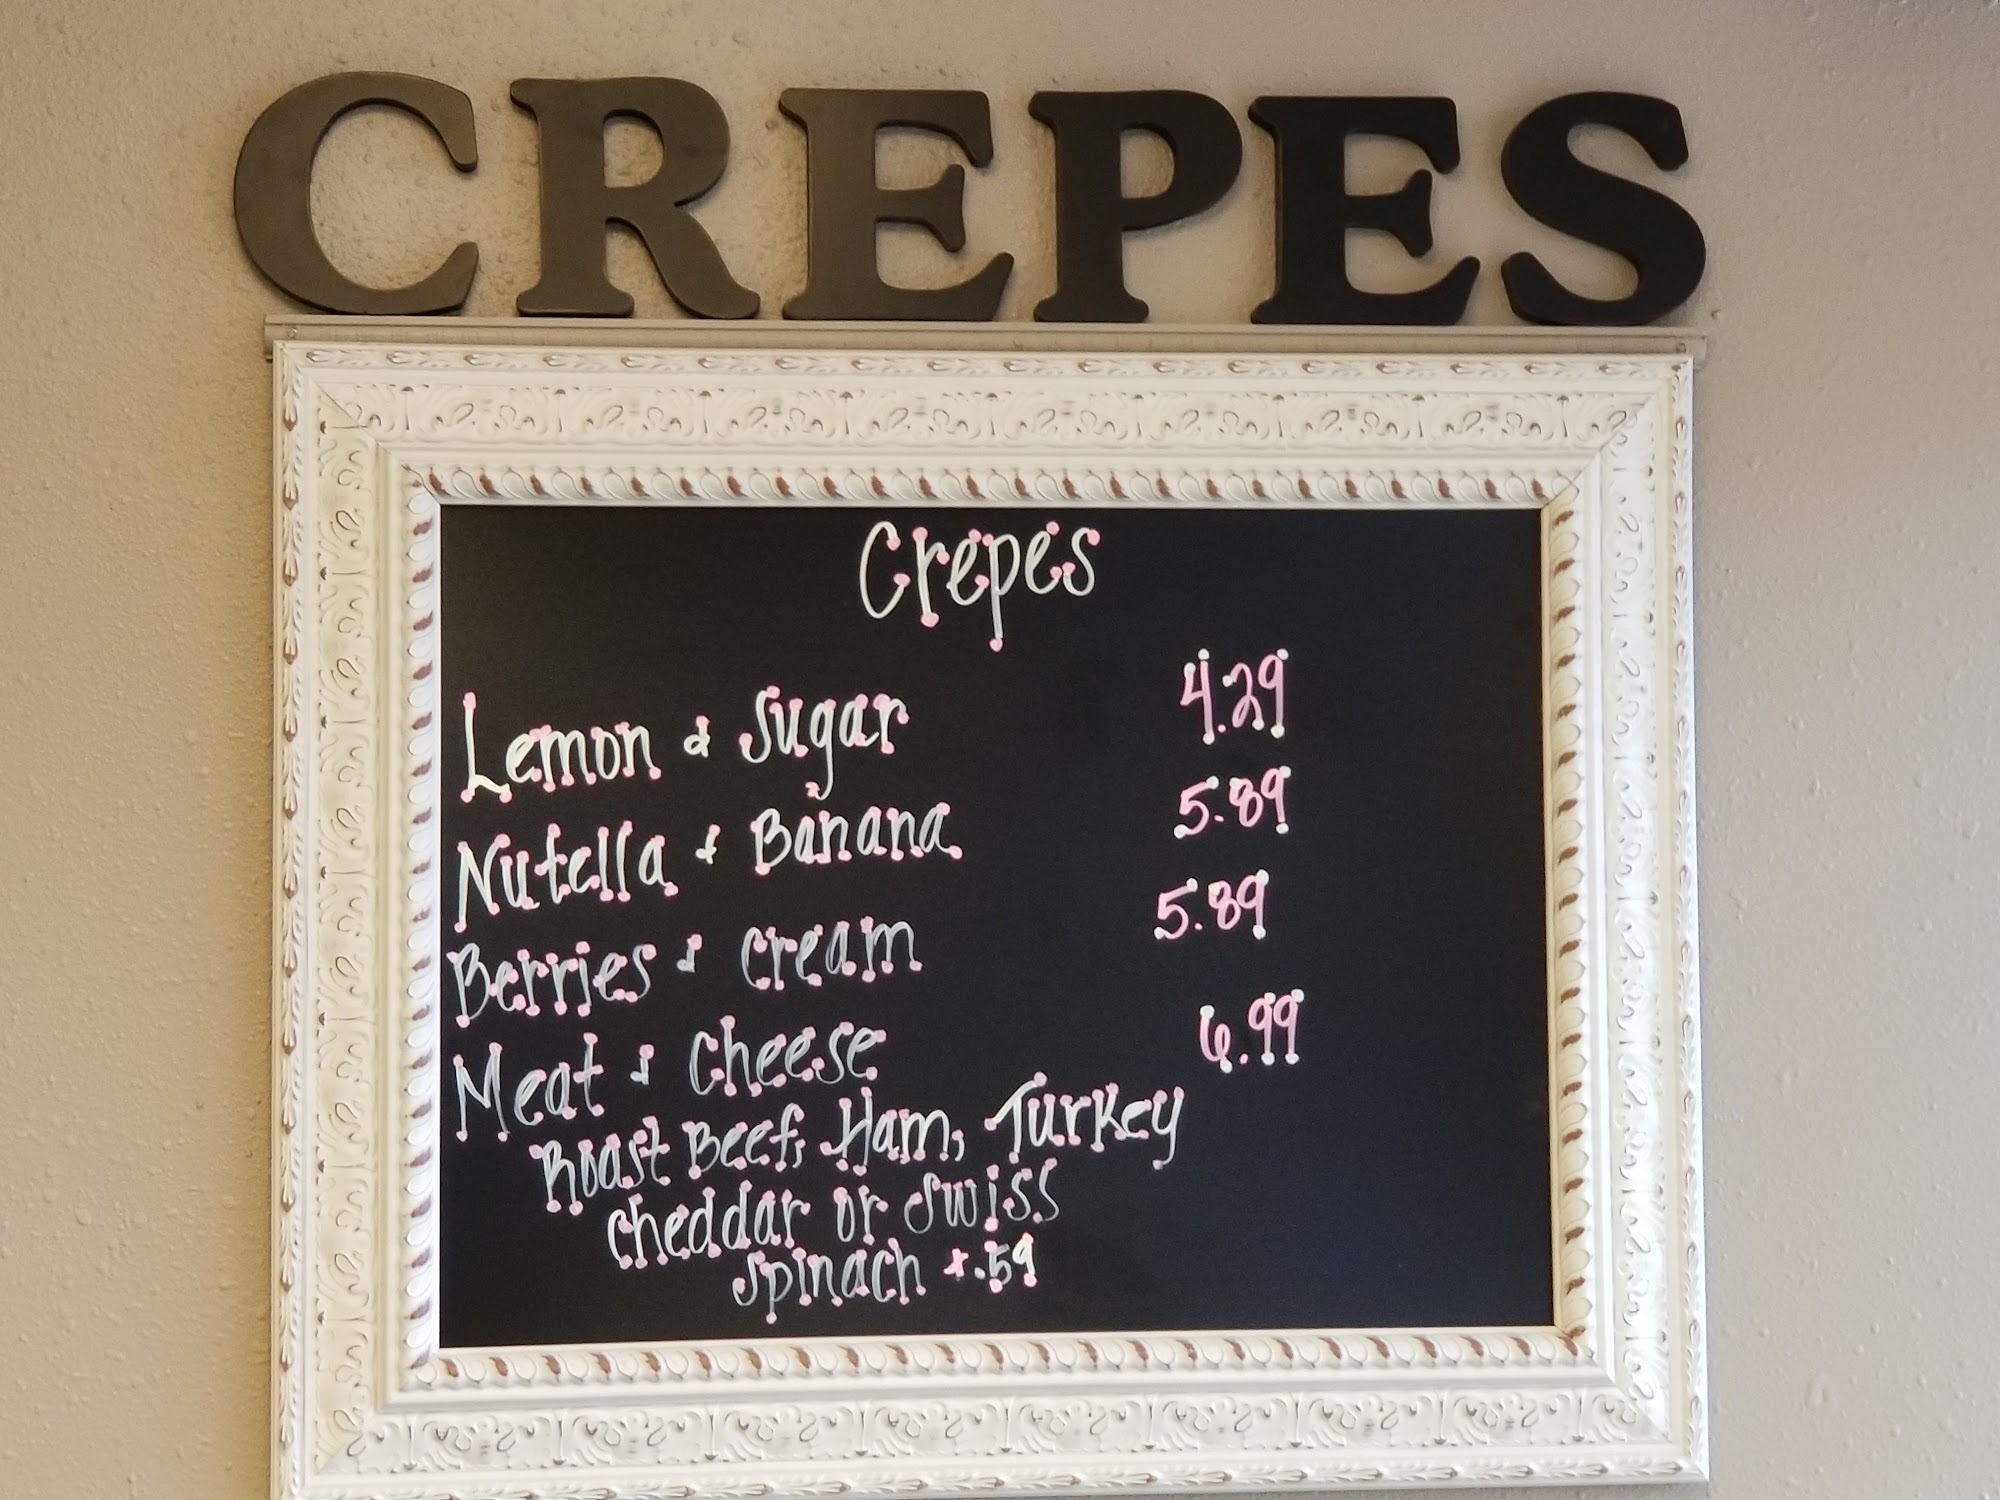 CREPES
Crepes
Lemon & Sugar 4.29
Nutella & Banana 5.89
Berries & cream 5.89
Meat & Cheese 6.99
Roast Beef, Ham, Turkey
cheddar or swiss
spinach +.59